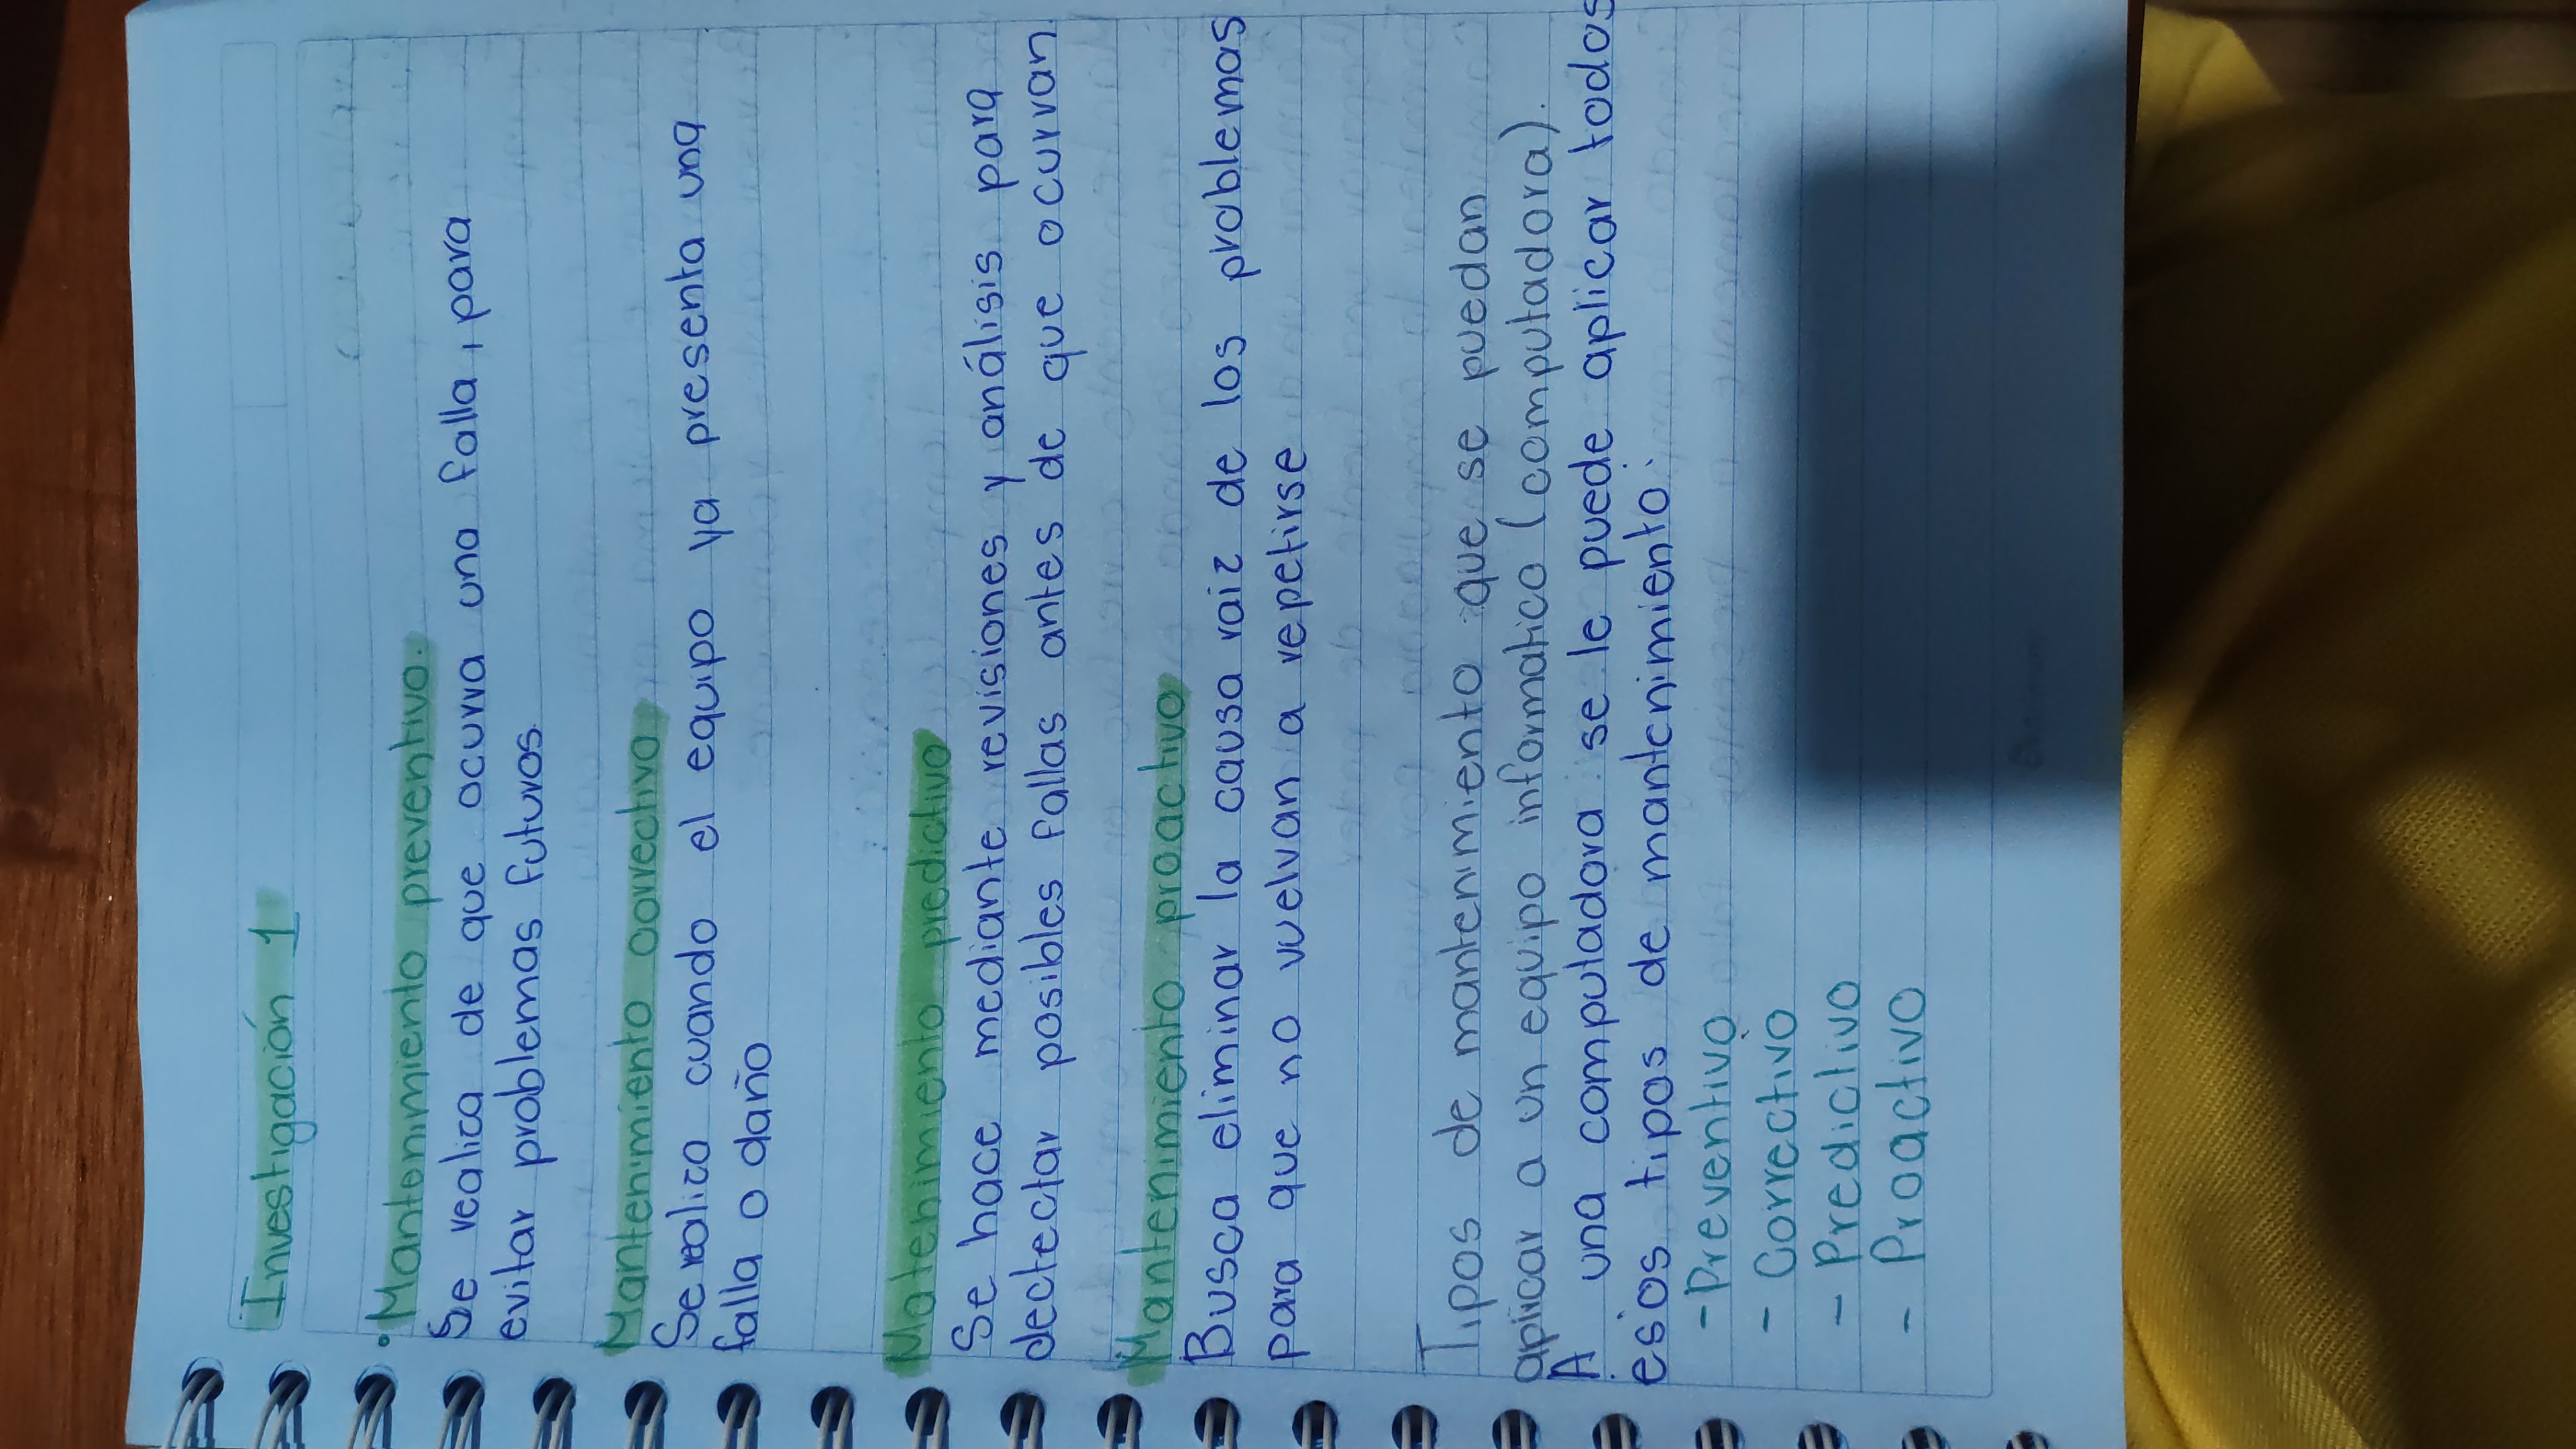 Investigación 1
• Mantenimiento preventivo.
Se realica de que ocurra una falla, para
evitar problemas futuros.
Mantenimiento correctivo
Se realica cuando el equipo ya presenta una
falla o daño
Matenimiento predictivo
Se hace mediante revisiones y análisis para
dectectar posibles fallas antes de que ocurran.
Mantenimiento proactivo
Busca eliminar la causa raiz de los problemas
para que no vuelvan a repetirse
Tipos de mantenimiento que se puedan
aplicar a un equipo informatico (computadora).
A una computadora se le puede aplicar todos
esios tipos de mantenimiento:
- Preventivo
- Correctivo
- Predictivo
- Proactivo